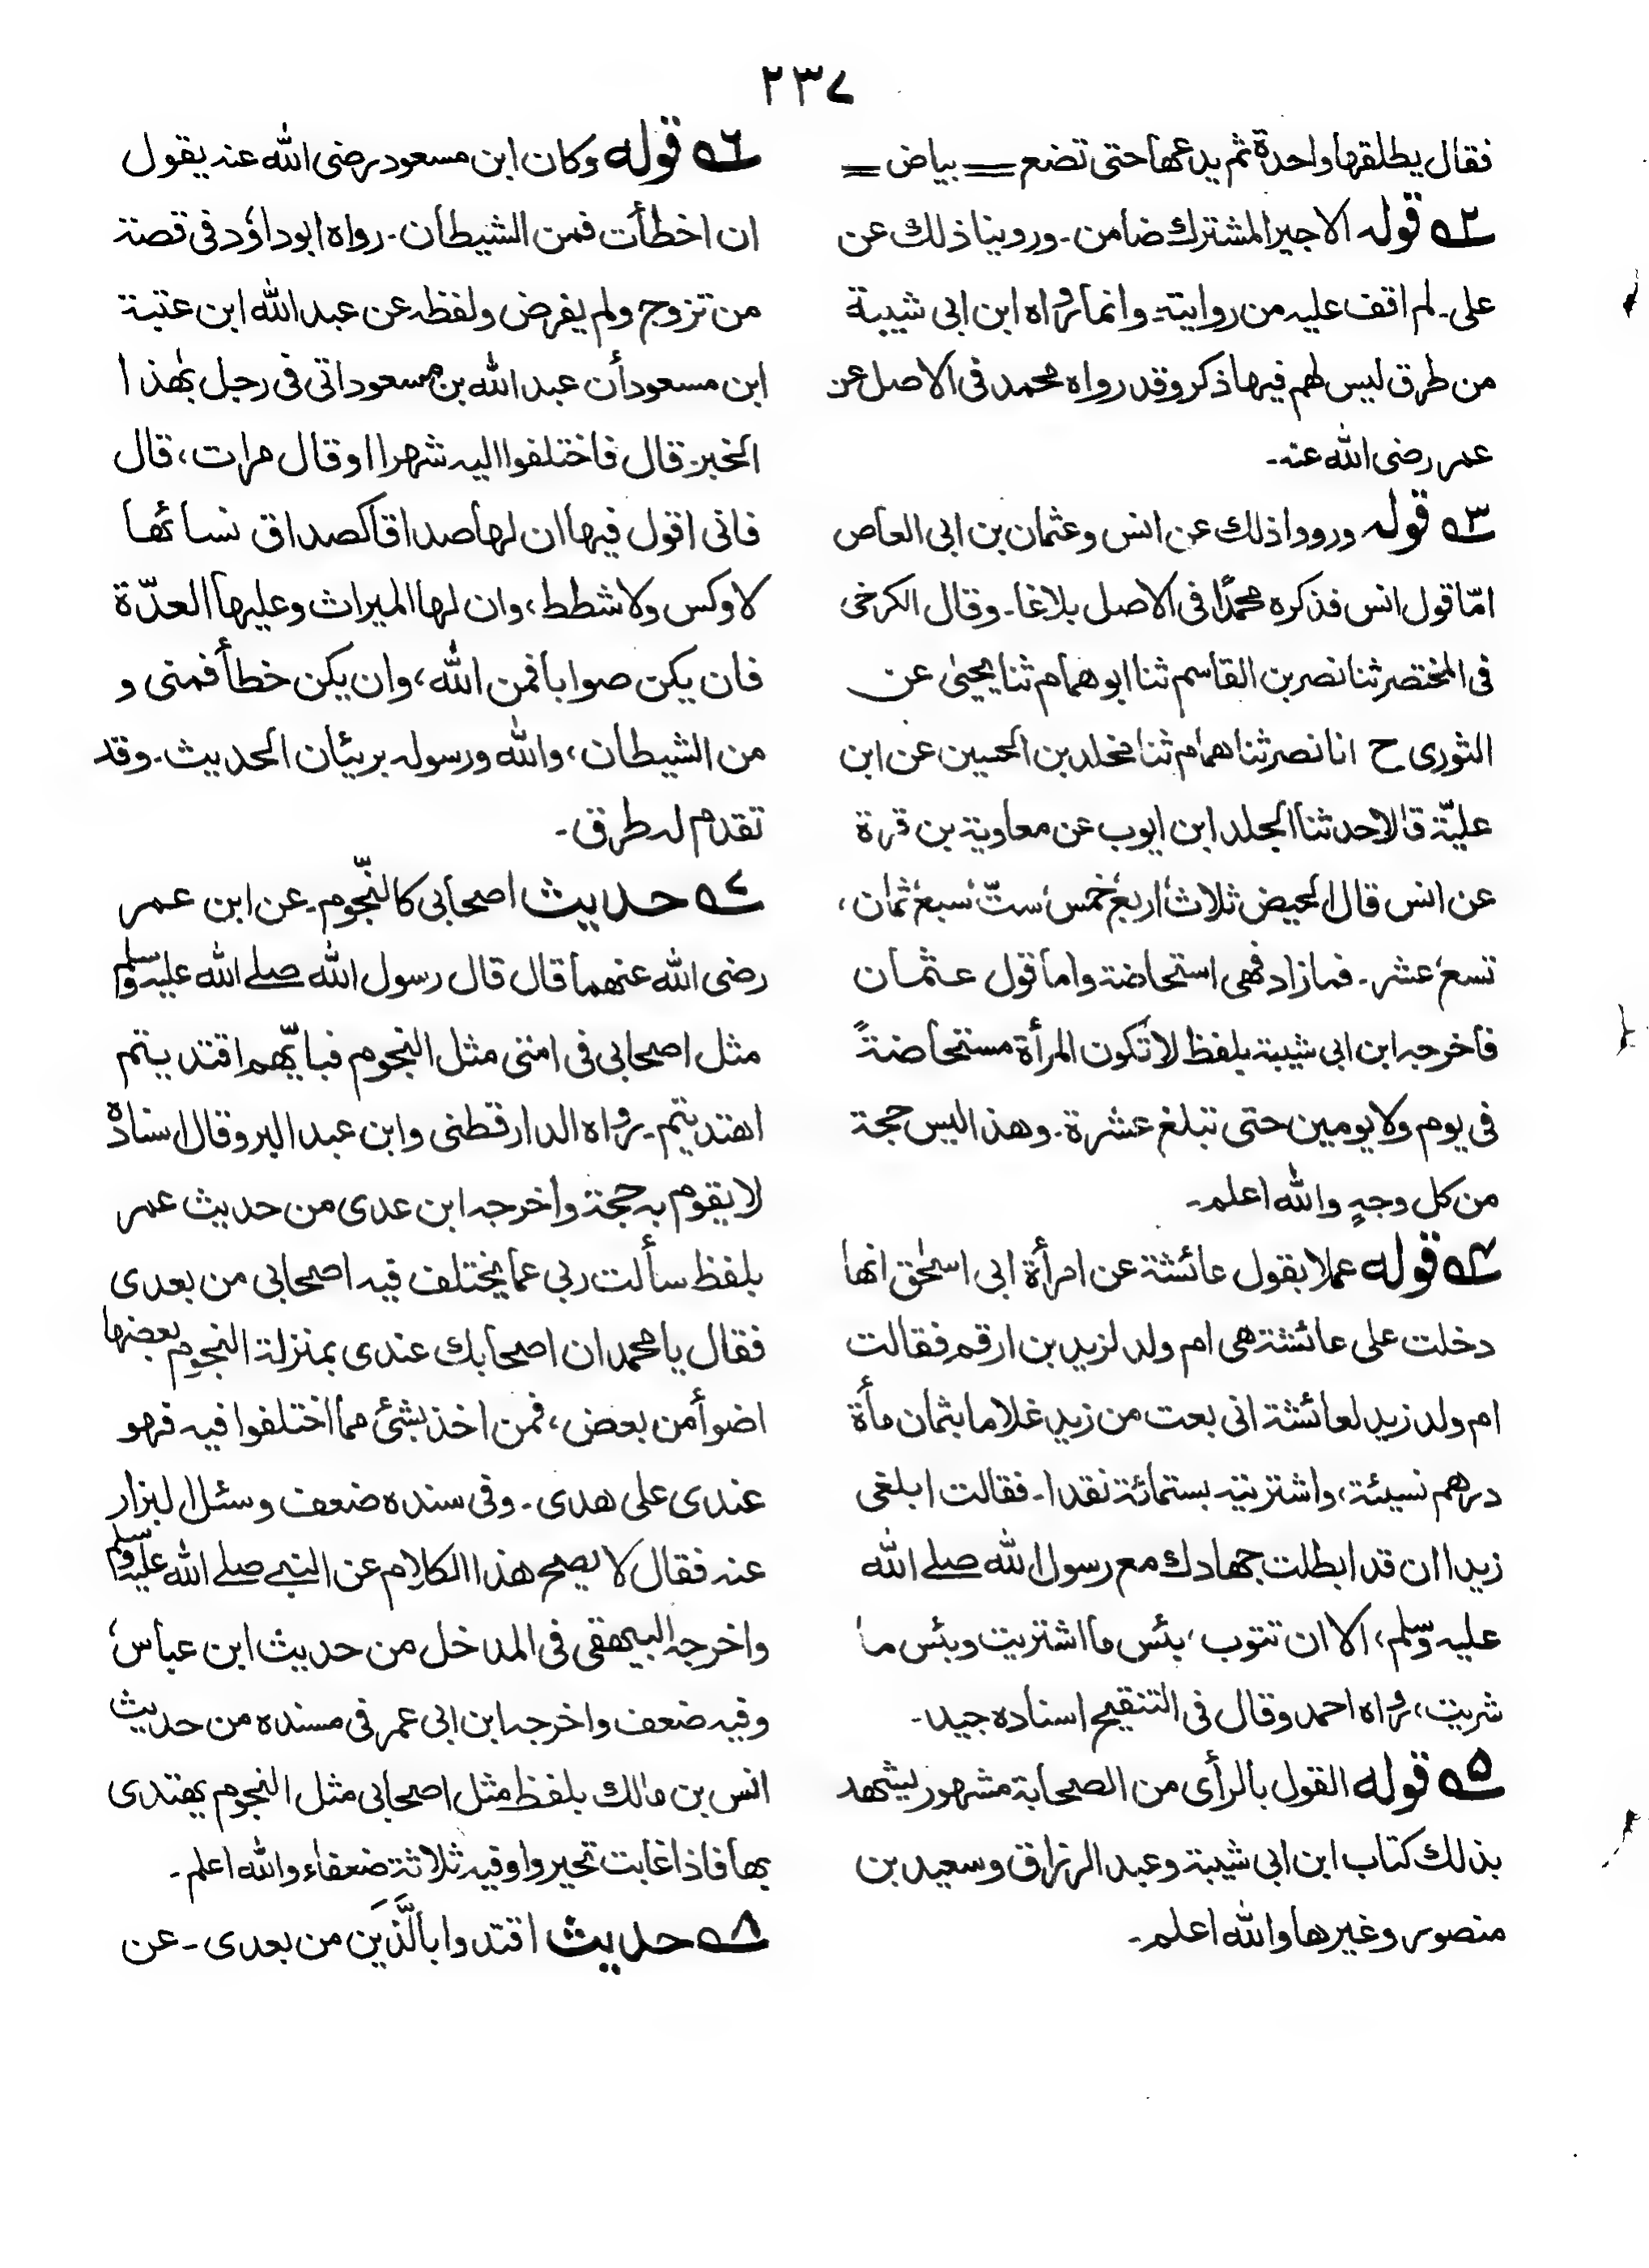 ٢٣٧
فقال يطلقها واحدة ثم يدعها حتى تضع = بياض =
٢ قوله الاجير المشترك ضامن۔ وروينا ذلك عن
على۔ لم اقف عليه من روايته۔ وانما رواه ابن ابى شيبة
من طرق ليس لهم فيها ذكر وقد رواه محمد فى الاصل عن
عمر رضى الله عنه۔
٣ قوله ورووا ذلك عن انس وعثمان بن ابى العاص
امّا قول انس فذكره محمدًا فى الاصل بلاغا۔ وقال الكرخى
فى المختصر ثنا نصر بن القاسم ثنا ابو همام ثنا يحيىٰ عن
الثورى ح انا نصر ثنا همام ثنا مخلد بن الحسين عن ابن
عليّة قالا حدثنا الجلد ابن ايوب عن معاوية بن قرة
عن انس قال الحيض ثلاث، اربع، خمس، ستّ، سبع، ثمان،
تسع، عشر۔ فما زاد فهى استحاضة واما قول عثمان
فاخرجه ابن ابى شيبة بلفظ لا تكون المرأة مستحاضةً
فى يوم ولا يومين حتى تبلغ عشرة۔ وهذا ليس حجة
من كل وجهٍ والله اعلم۔
٤ قوله عملا بقول عائشة عن امرأة ابى اسحٰق انها
دخلت على عائشة هى ام ولد لزيد بن ارقم فقالت
ام ولد زيد لعائشة انى بعت من زيد غلاما بثمان مأة
درهم نسيئة، واشتريته بستمائة نقدا۔ فقالت ابلغى
زيدا ان قد ابطلت جهادك مع رسول الله صلے الله
عليه وسلم، الا ان تتوب، بئس ما اشتريت وبئس ما
شريت، رواه احمد وقال فى التنقيح اسناده جيد۔
٥ قوله القول بالرأى من الصحابة مشهور ليشهد
بذلك كتاب ابن ابى شيبة وعبد الرزاق وسعيد بن
منصور وغيرها والله اعلم۔
٦ قوله وكان ابن مسعود رضى الله عنه يقول
ان اخطأت فمن الشيطان۔ رواه ابو داؤد فى قصة
من تزوج ولم يفرض ولفظه عن عبد الله ابن عتبة
ابن مسعود أن عبد الله بن مسعود اتى فى رجل بهٰذا
الخبر۔ قال فاختلفوا اليه شهرا او قال مرات، قال
فانى اقول فيها ان لها صداقا كصداق نسائها
لا وكس ولا شطط، وان لها الميراث وعليها العدّة
فان يكن صوابا فمن الله، وان يكن خطأ فمنى و
من الشيطان، والله ورسوله بريئان الحديث۔ وقد
تقدم له طرق۔
٧ حديث اصحابى كالنّجوم۔ عن ابن عمر
رضى الله عنهما قال قال رسول الله صلے الله عليه وسلم
مثل اصحابى فى امتى مثل النجوم فبايّهم اقتديتم
اهتديتم۔ رواه الدارقطنى وابن عبد البر وقال اسناده
لا يقوم به حجة واخرجه ابن عدى من حديث عمر
بلفظ سألت ربى عما يختلف فيه اصحابى من بعدى
فقال يا محمد ان اصحابك عندى بمنزلة النجوم بعضها
اضوأ من بعض، فمن اخذ بشئ مما اختلفوا فيه فهو
عندى على هدى۔ وفى سنده ضعف وسئل البزار
عنه فقال لا يصح هذا الكلام عن النبى صلے الله عليه وسلم
واخرجه البيهقى فى المدخل من حديث ابن عباس،
وفيه ضعف واخرجه ابن ابى عمر فى مسنده من حديث
انس بن مالك بلفظ مثل اصحابى مثل النجوم يهتدى
بها فاذا غابت تحيروا وفيه ثلاثة ضعفاء والله اعلم۔
٨ حديث اقتدوا بالَّذَين من بعدى۔ عن